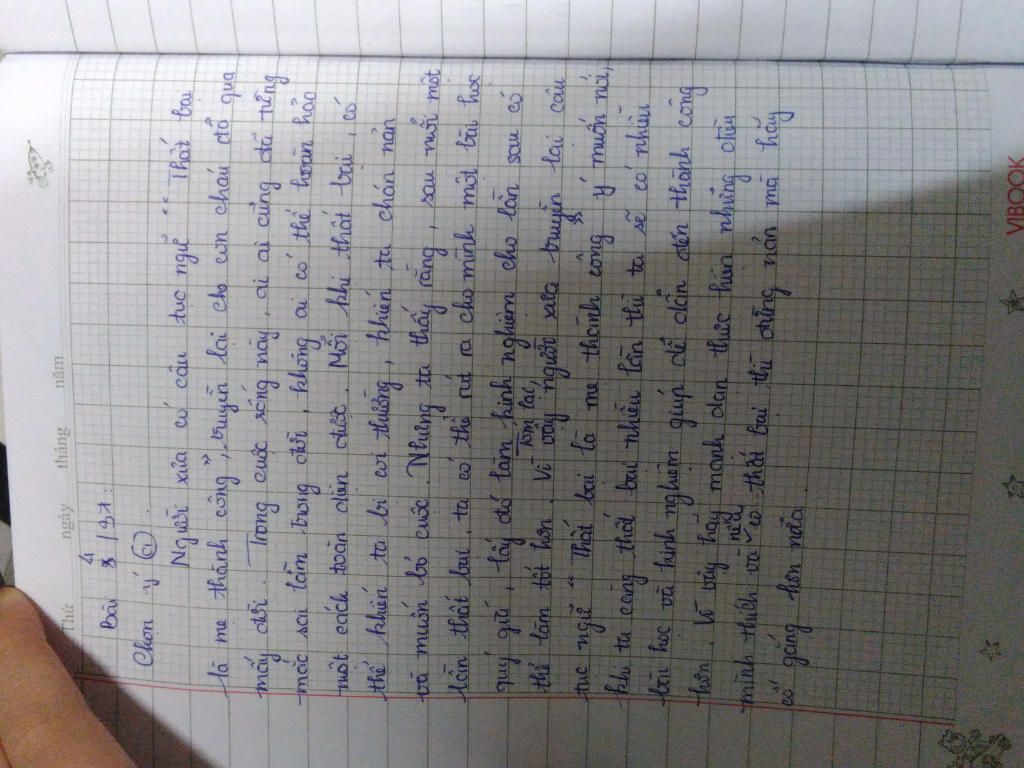 Thứ ngày tháng năm
Bài 4 / 37:
Chọn ý a
Người xưa có câu tục ngữ " Thất bại
là mẹ thành công ", truyền lại cho con cháu đã qua
mấy đời. Trong cuộc sống này, ai ai cũng đã từng
mắc sai lầm. Trong đời, không ai có thể hoàn hảo
một cách toàn diện được. Mỗi khi thất bại, có
thể khiến ta bị coi thường, khiến ta chán nản
và muốn bỏ cuộc. Nhưng ta thấy rằng, sau mỗi một
lần thất bại, ta có thể rút ra cho mình một bài học
quý giá, lấy đó làm kinh nghiệm cho lần sau có
thể làm tốt hơn. Vì vậy, người xưa truyền lại câu
Tóm lại,
tục ngữ " Thất bại là mẹ thành công " ý muốn nói,
khi ta càng thất bại nhiều lần thì ta sẽ có nhiều
bài học và kinh nghiệm giúp dễ dẫn đến thành công
hơn. Vì vậy hãy mạnh dạn thực hiện những điều
mình thích và nếu có thất bại thì đừng nản mà hãy
cố gắng hơn nữa.
VIBOOK